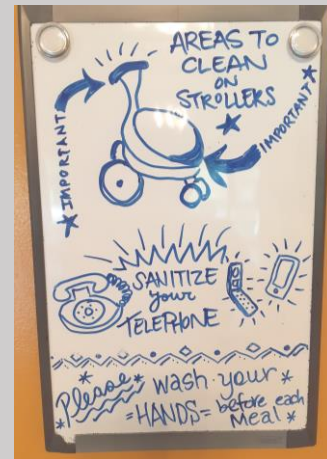 AREAS TO
CLEAN
ON
STROLLERS
IMPORTANT
IMPORTANT
SANITIZE
your
TELEPHONE
Please wash your
=HANDS= before each
Meal